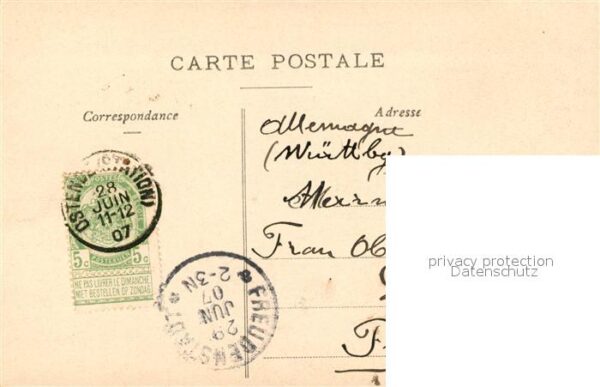 CARTE POSTALE
Correspondance
Adresse
Allemagne
(Württbg)
Frau Ob
OSTENDE (STATION)
28
JUIN
11-12
07
5c 5c
POSTERIJEN
NE PAS LIVRER LE DIMANCHE
NIET BESTELLEN OP ZONDAG
FREUDENSTADT
29
JUN
07
2-3N
privacy protection
Datenschutz